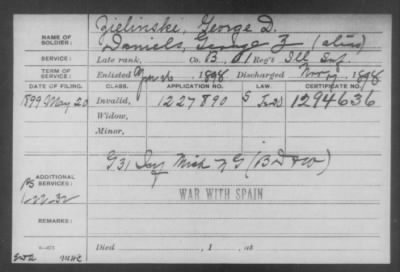 NAME OF SOLDIER: Zielinski, George D.
Daniels, George Z (alias)
SERVICE: Late rank, Co. B, 1 Reg't Ill Inf.
TERM OF SERVICE: Enlisted 26, 1898 Discharged Nov 17, 1898
DATE OF FILING. CLASS. APPLICATION NO. LAW. CERTIFICATE NO.
1899 May 20 Invalid, 1227890 1294636
Widow,
Minor,
G 31 Inf Mich N G (B D & W)
ADDITIONAL SERVICES:
WAR WITH SPAIN
REMARKS:
Died , 1 , at